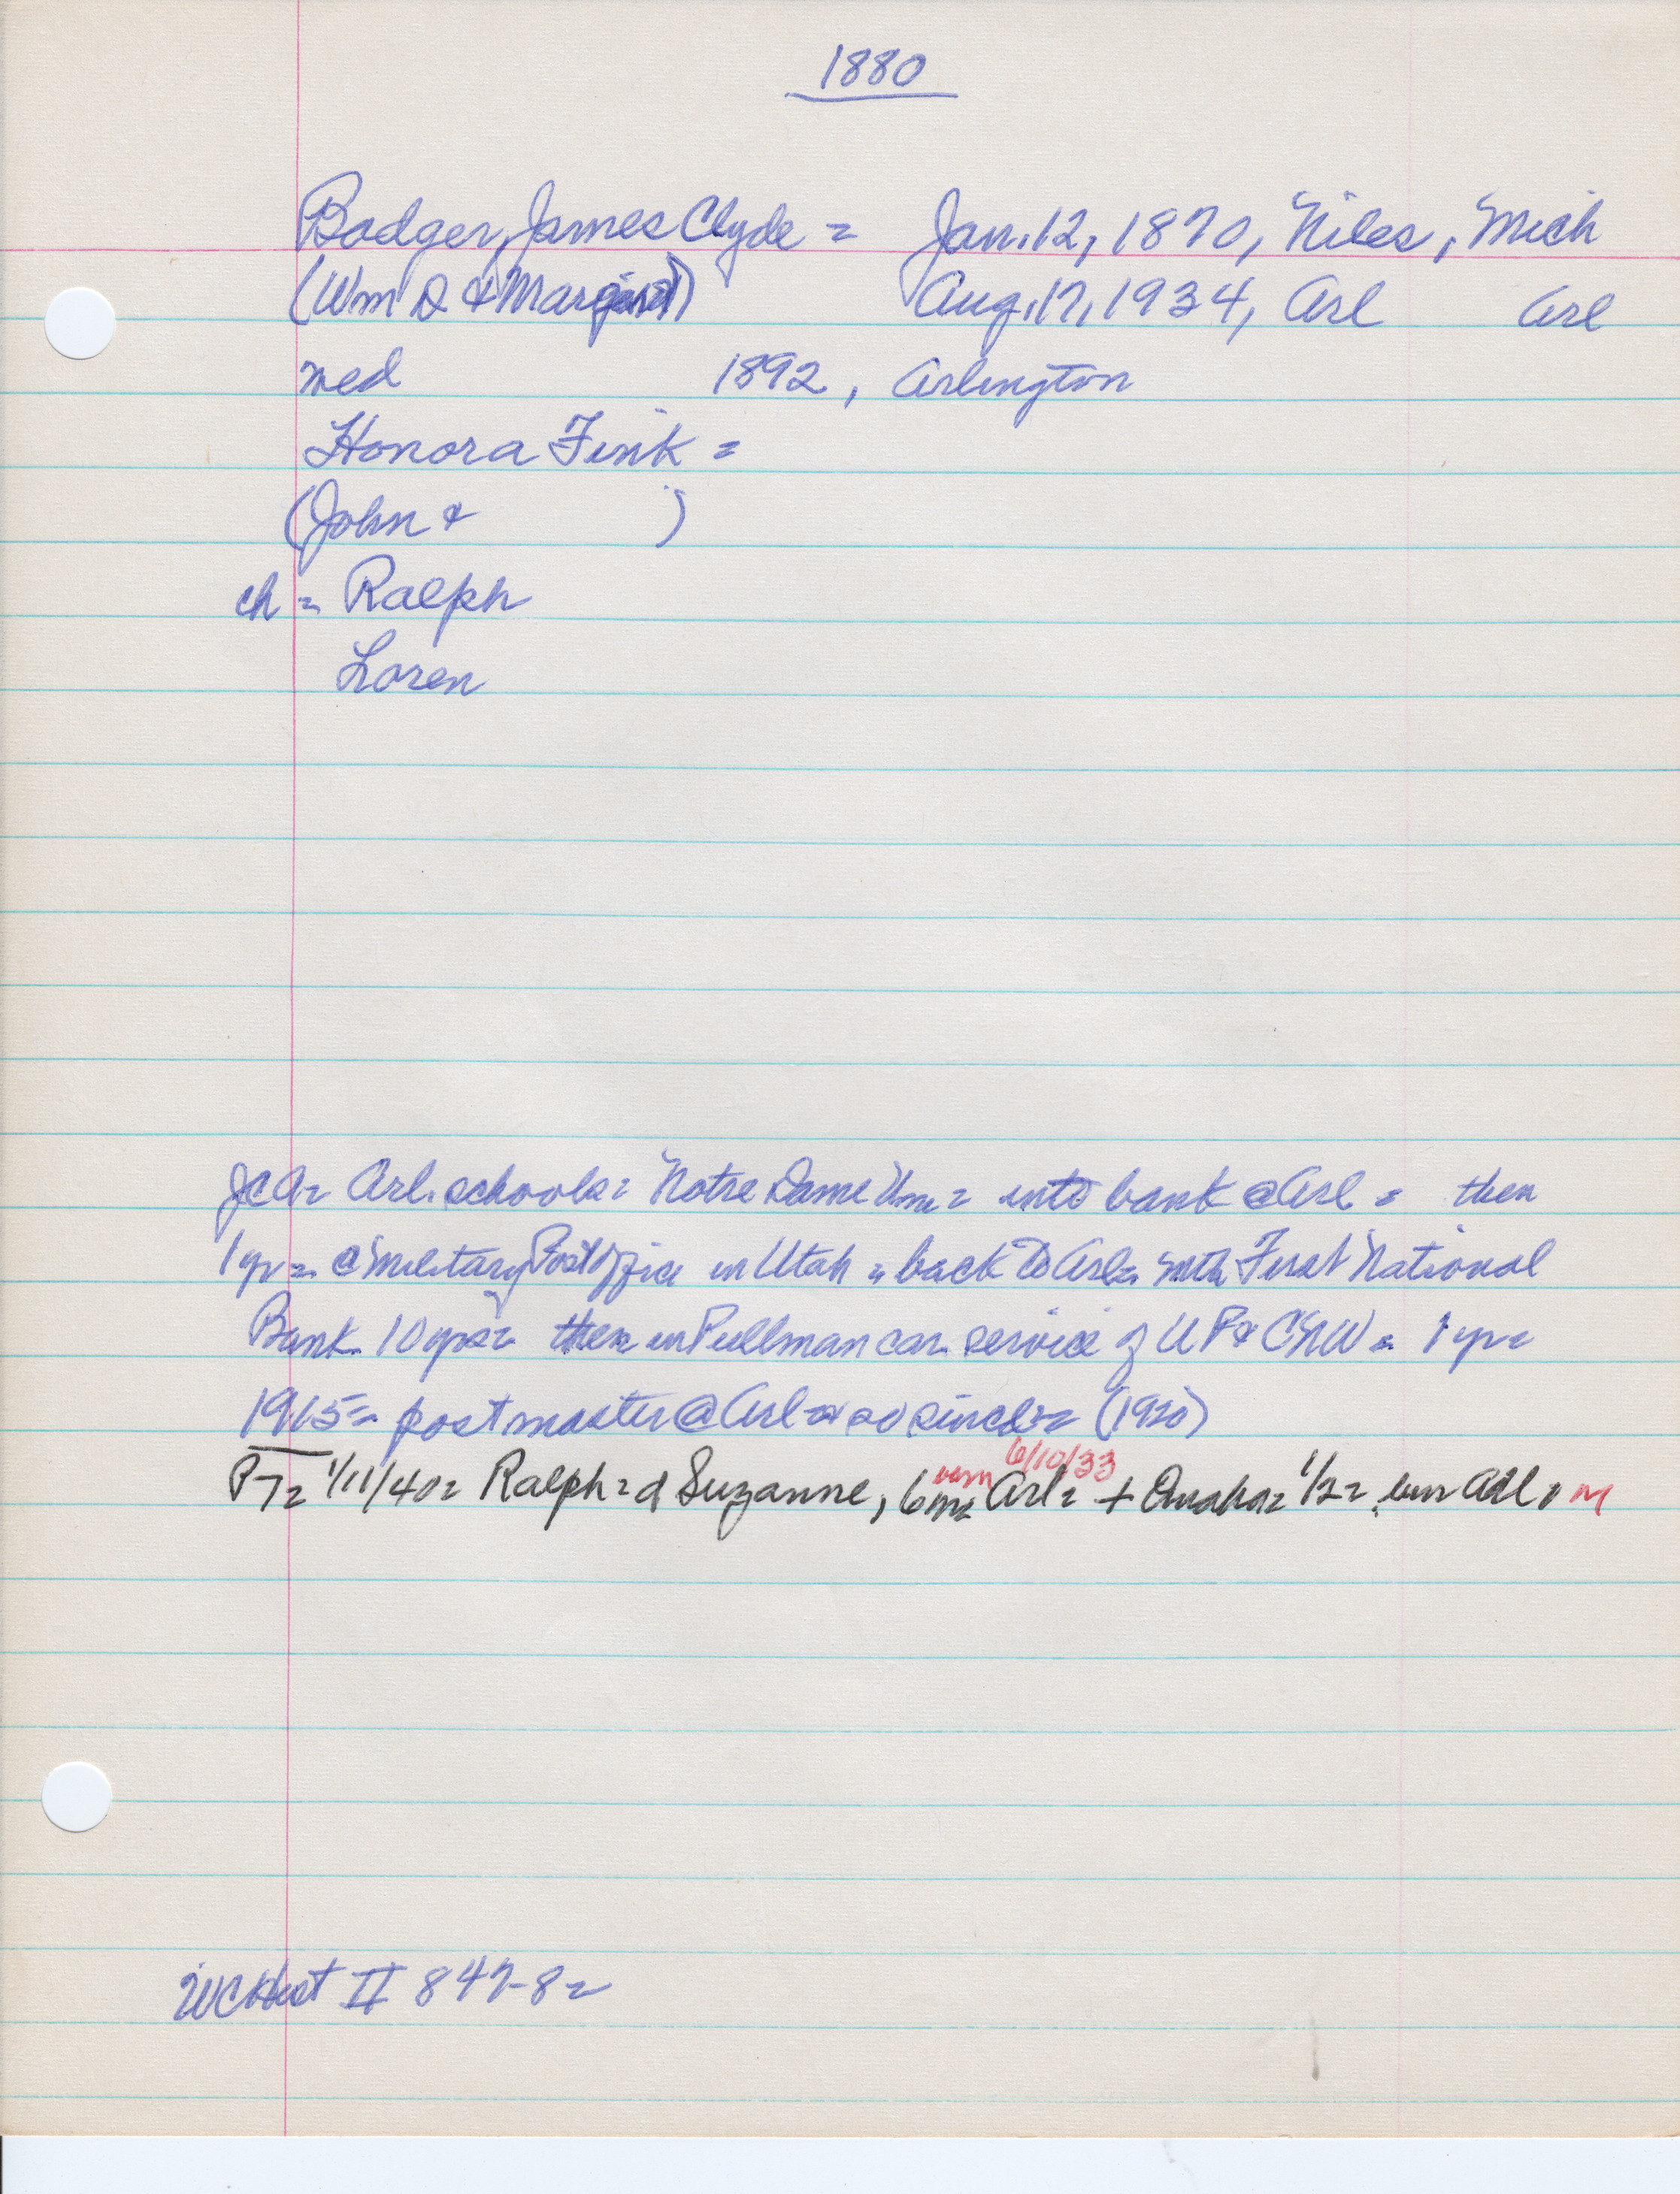 1880
Badger, James Clyde = Jan. 12, 1870, Niles, Mich
(Wm D & Margaret) Aug. 17, 1934, Arl Arl
wed 1892, Arlington
Honora Fink =
(John & )
ch = Ralph
Loren
Arl. schools = Notre Dame = into bank @ Arl = then
1 yr = @ military Post Office in Utah = back to Arl = with First National
Bank 10 yrs = then in Pullman car service of UP & CNW = 1 yr =
1915 = postmaster @ Arl = so since = (1920)
6/10/33
1/11/40 = Ralph = d Suzanne, 6 born Arl = + Omaha = 1/2 = bur Arl
WC Hist II 847-8 =